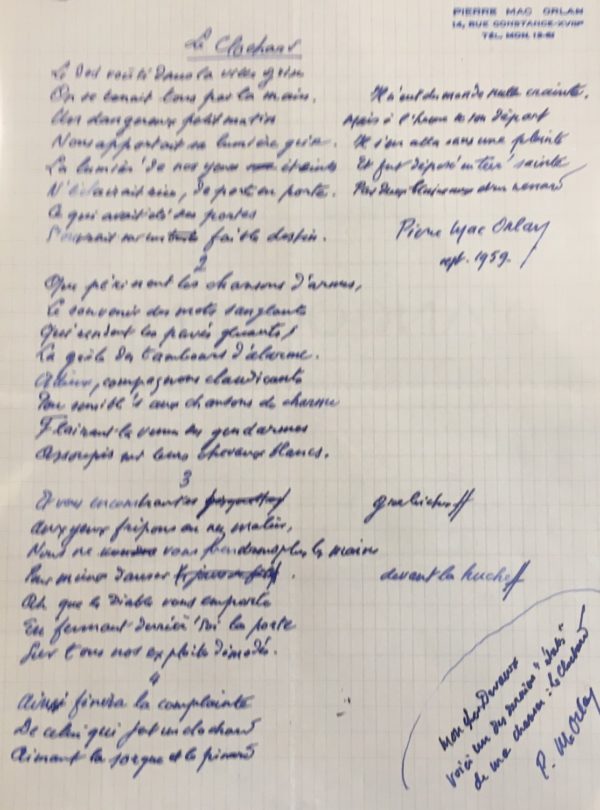 PIERRE MAC ORLAN
14, RUE CONSTANCE-XVIIIe
TÉL. MON. 12-61
Le Clochard
Le dos voûté dans la ville grise
On se tenait tous par la main.
Un dangereux petit matin
Nous apportait sa lumière grise.
La lumière de nos yeux éteints
N'éclairait rien, de porte en porte.
Ce qui avait été des portes
faible destin.
2
Que périssent les chansons d'armes,
Le souvenir des mots sanglants
Qui rendent les pavés glissants
La grêle des tambours d'alarme.
Adieu, compagnons claudicants
Peu sensibles aux chansons de charme
Flairant la venue des gendarmes
Assoupis sur leurs chevaux blancs.
3
Et vous encombrantes
aux yeux fripons au nez mutin,
Nous ne vous prendrons plus les mains
Pour mener danser
devant la huche
Ah que le diable vous emporte
En fermant derrière soi la porte
Sur tous nos exploits démodés.
4
Ainsi finira la complainte
De celui qui fut un clochard
Aimant la sorgue et le pinard
Il n'eut du monde nulle crainte.
Mais à l'heure de son départ
Il s'en alla sans une plainte
Et fut déposé en terre sainte
Par deux blaireaux et un renard
Pierre Mac Orlan
sept. 1959.
Mon cher
Voici un des derniers "états"
de ma chanson : Le Clochard
P. M Orlan